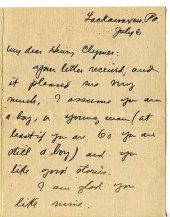 Lackawaxen, Pa.
July 6
My dear Henry Clymer:
your letter received, and
it pleased me very
much, I assume you are
a boy, or young man (at
least if you are 60 you are
still a boy) and you
like good stories.
I am glad you
like mine.